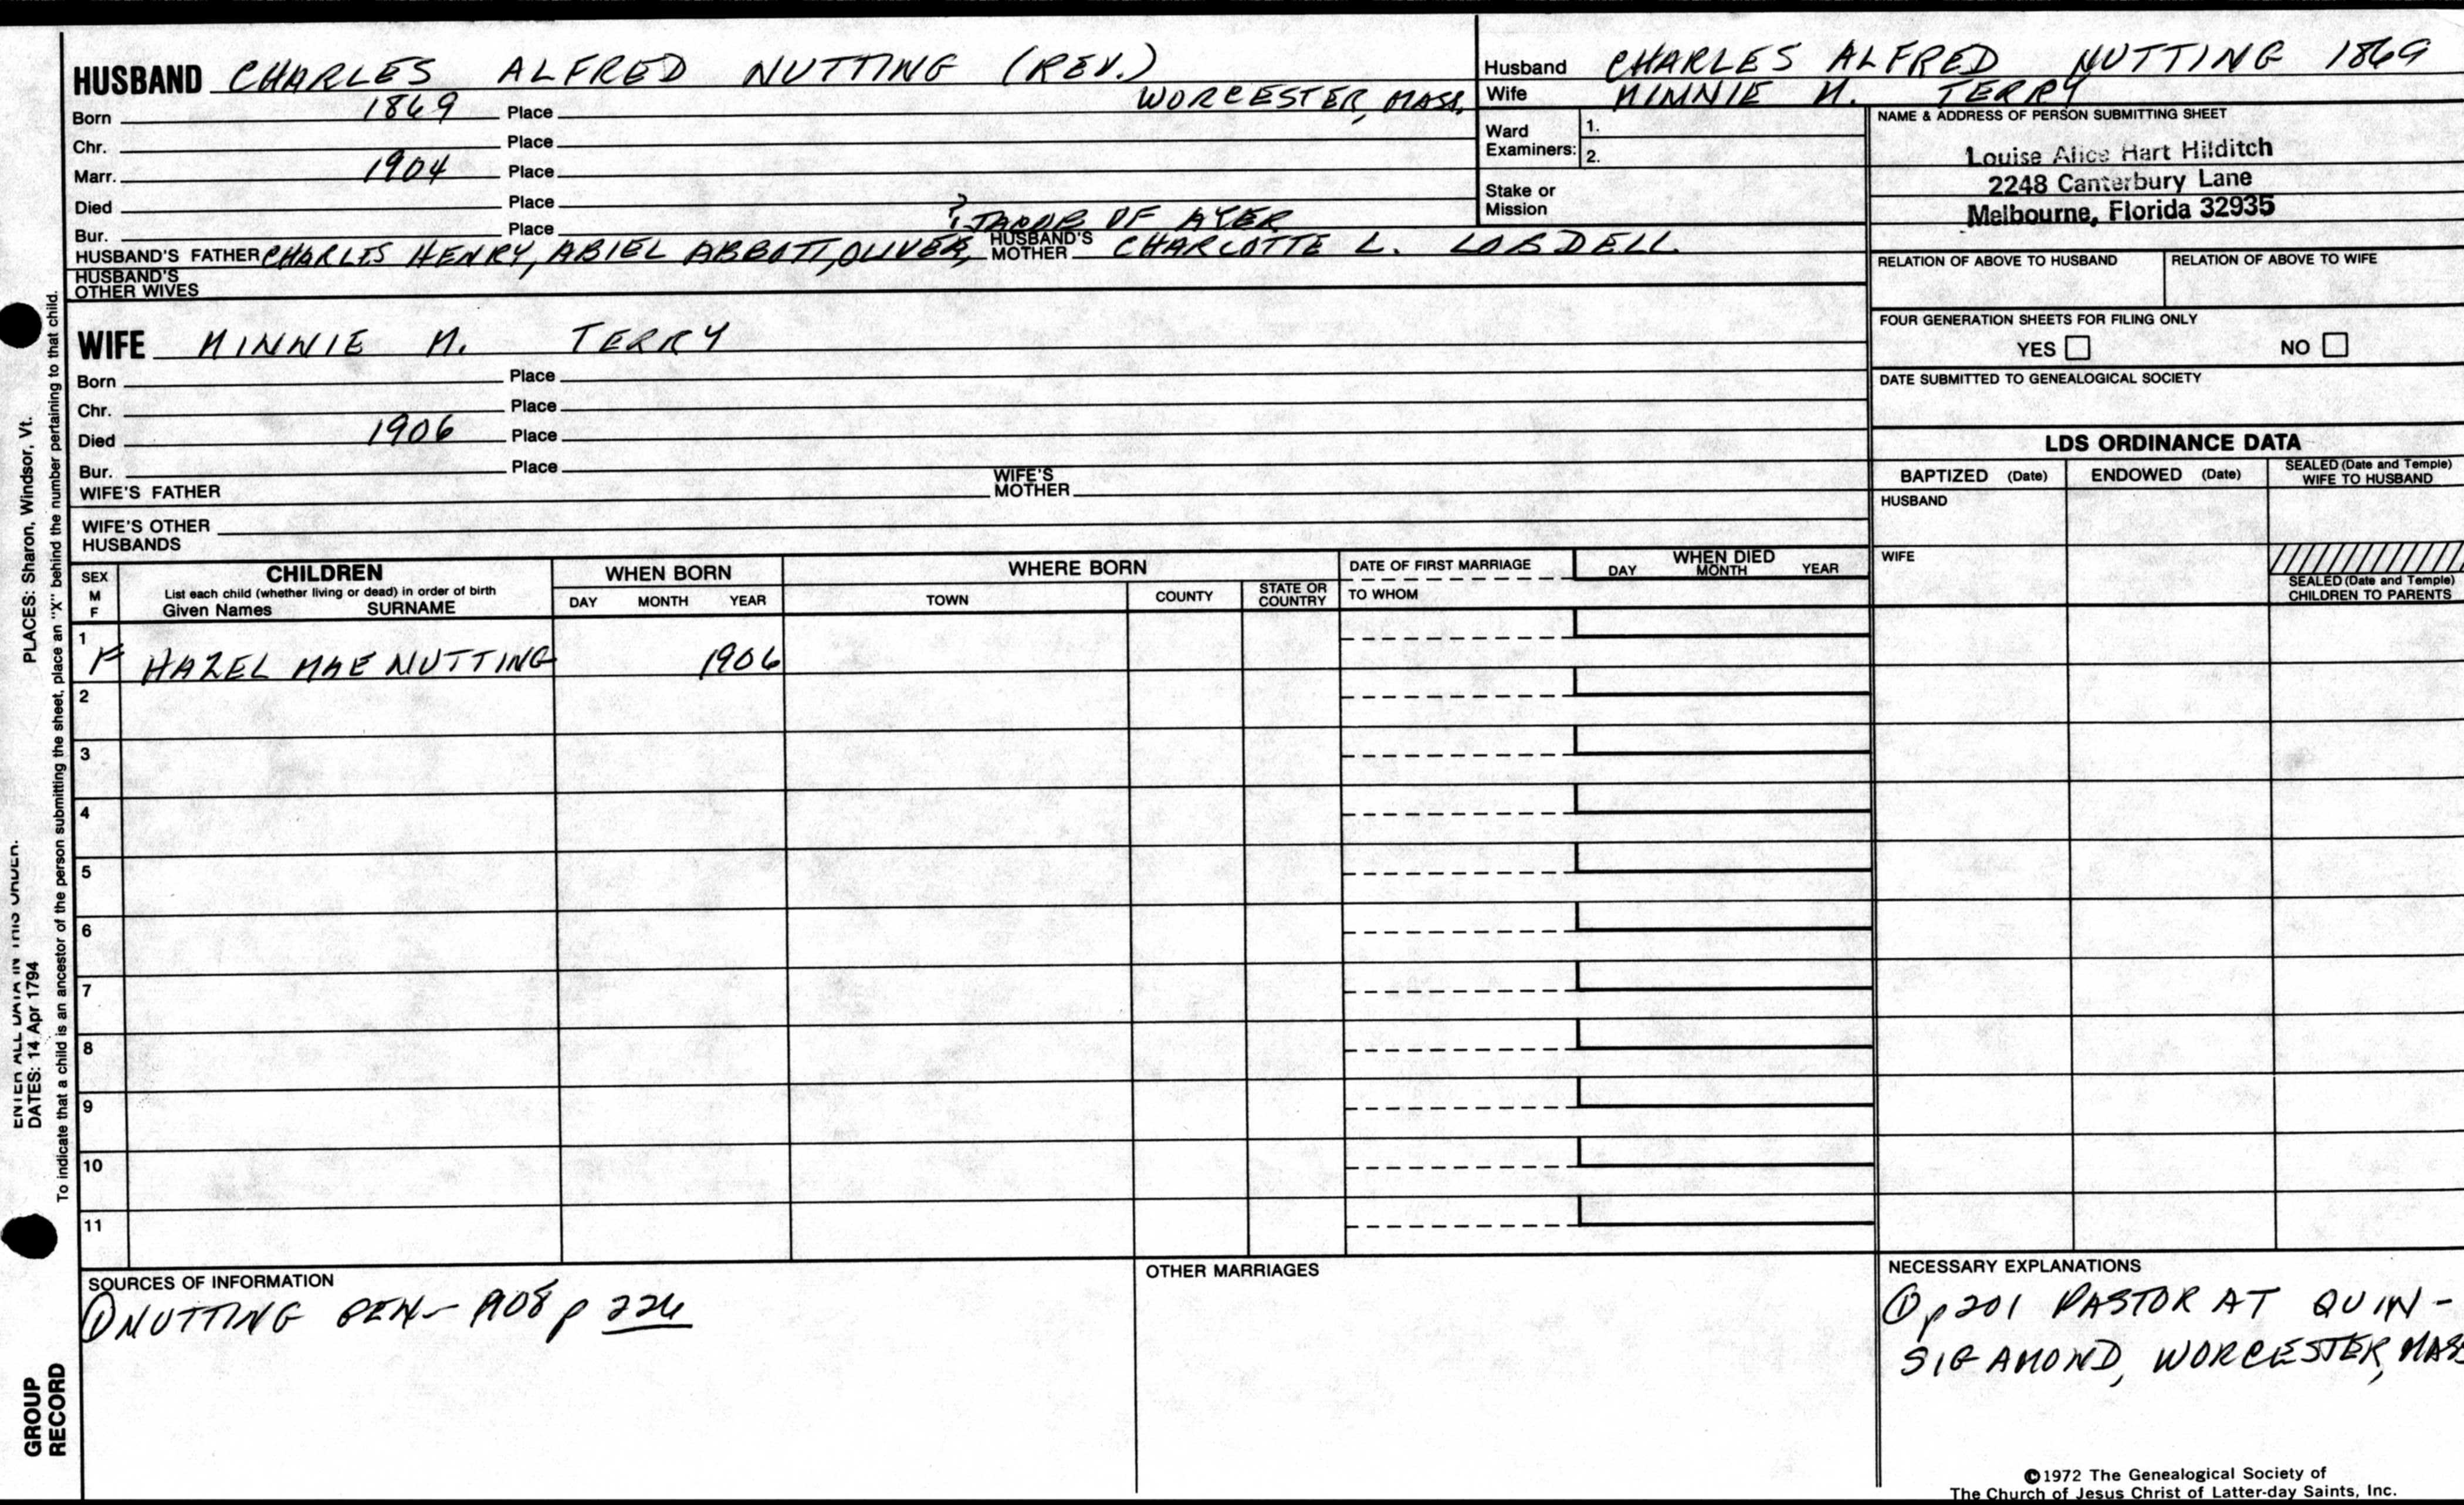 HUSBAND CHARLES ALFRED NUTTING (REV.)
Born 1869 Place WORCESTER, MASS.
Chr. Place
Marr. 1904 Place
Died Place
Bur. Place
? JACOB OF AYER
HUSBAND'S FATHER CHARLES HENRY, ABIEL ABBOTT, OLIVER, HUSBAND'S MOTHER CHARLOTTE L. LOBDELL
HUSBAND'S
OTHER WIVES
WIFE MINNIE M. TERRY
Born Place
Chr. Place
Died 1906 Place
Bur. Place
WIFE'S FATHER WIFE'S MOTHER
WIFE'S OTHER
HUSBANDS
Husband CHARLES ALFRED NUTTING 1869
Wife MINNIE M. TERRY
Ward
Examiners:
1.
2.
Stake or
Mission
NAME & ADDRESS OF PERSON SUBMITTING SHEET
Louise Alice Hart Hilditch
2248 Canterbury Lane
Melbourne, Florida 32935
RELATION OF ABOVE TO HUSBAND RELATION OF ABOVE TO WIFE
FOUR GENERATION SHEETS FOR FILING ONLY
YES NO
DATE SUBMITTED TO GENEALOGICAL SOCIETY
LDS ORDINANCE DATA
BAPTIZED (Date) ENDOWED (Date) SEALED (Date and Temple) WIFE TO HUSBAND
HUSBAND
WIFE
SEALED (Date and Temple)
CHILDREN TO PARENTS
SEX
M
F
CHILDREN
List each child (whether living or dead) in order of birth
Given Names SURNAME
WHEN BORN
DAY MONTH YEAR
WHERE BORN
TOWN COUNTY STATE OR COUNTRY
DATE OF FIRST MARRIAGE
TO WHOM
WHEN DIED
DAY MONTH YEAR
1
F HAZEL MAE NUTTING 1906
2
3
4
5
6
7
8
9
10
11
SOURCES OF INFORMATION
① NUTTING GEN- 1908 p 226
OTHER MARRIAGES
NECESSARY EXPLANATIONS
① p 201 PASTOR AT QUIN-
SIGAMOND, WORCESTER, MASS
©1972 The Genealogical Society of
The Church of Jesus Christ of Latter-day Saints, Inc.
ENTER ALL DATA IN THIS ORDER.
DATES: 14 Apr 1794
PLACES: Sharon, Windsor, Vt.
To indicate that a child is an ancestor of the person submitting the sheet, place an "X" behind the number pertaining to that child.
GROUP
RECORD